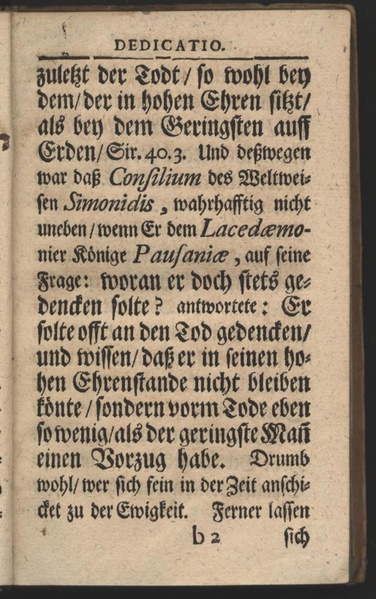 DEDICATIO.
zuletzt der Todt / so wohl bey
dem / der in hohen Ehren sitzt /
als bey dem Geringsten auff
Erden / Sir. 40. 3. Und deßwegen
war daß Consilium des Weltwei-
sen Simonidis, wahrhafftig nicht
uneben / wenn Er dem Lacedæmo-
nier Könige Pausaniæ, auf seine
Frage: woran er doch stets ge-
dencken solte? antwortete: Er
solte offt an den Tod gedencken /
und wissen / daß er in seinen ho-
hen Ehrenstande nicht bleiben
könte / sondern vorm Tode eben
so wenig / als der geringste Mañ
einen Vorzug habe. Drumb
wohl / wer sich fein in der Zeit anschi-
cket zu der Ewigkeit. Ferner lassen
b 2 sich